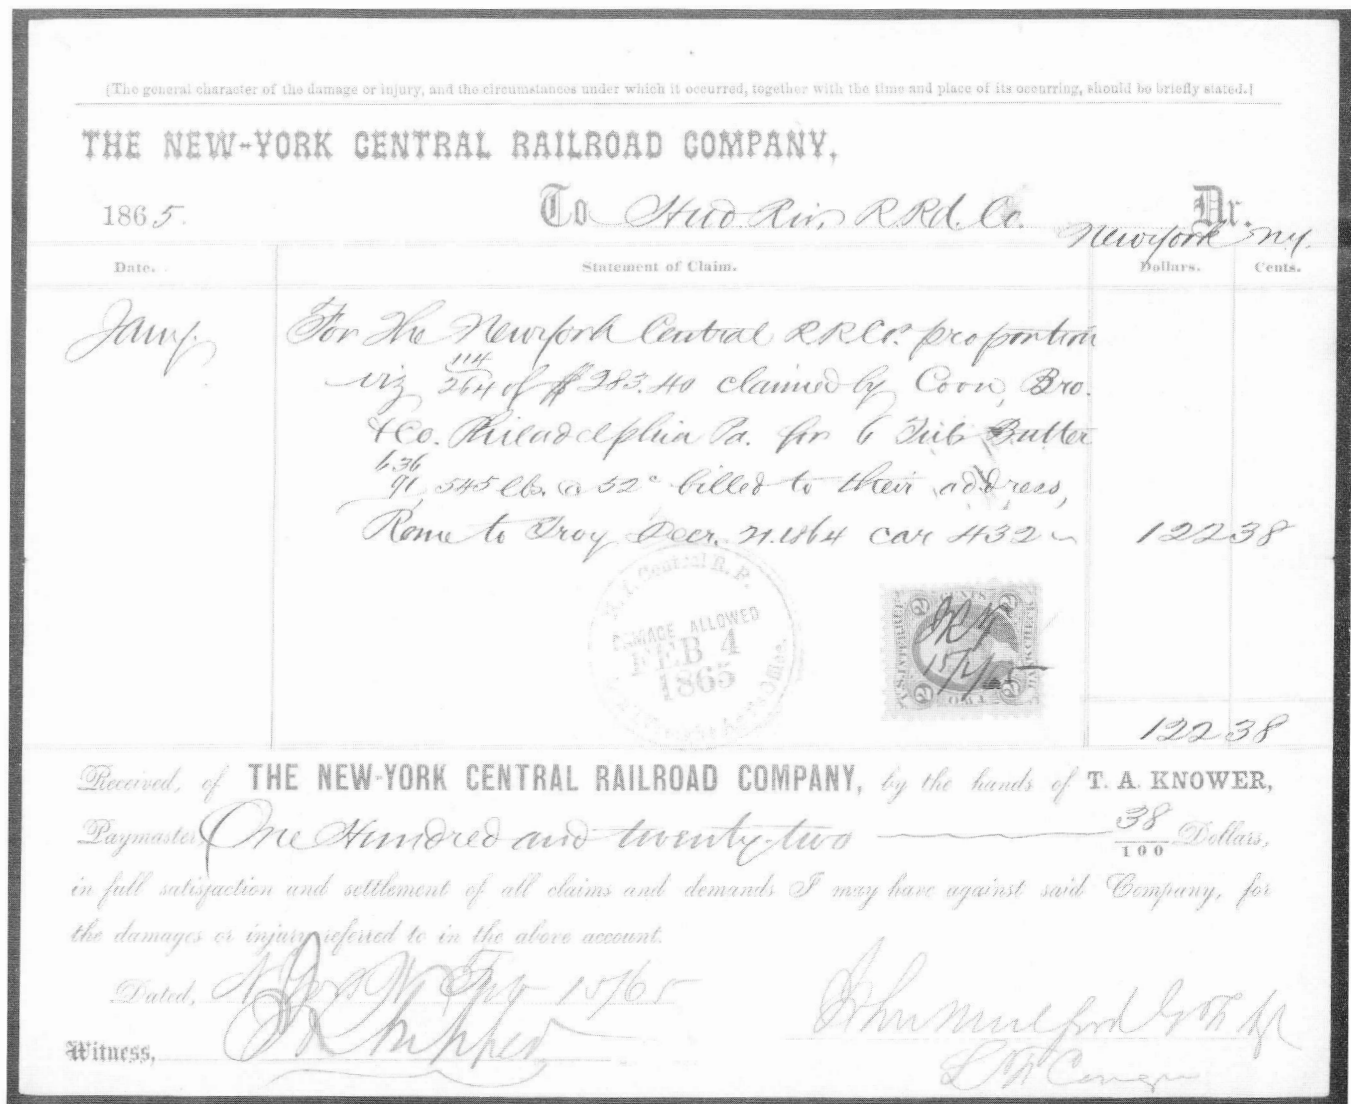 [The general character of the damage or injury, and the circumstances under which it occurred, together with the time and place of its occurring, should be briefly stated.]
THE NEW-YORK CENTRAL RAILROAD COMPANY,
1865. To Hud Riv, R Rd. Co. Dr.
New York N.Y.
Date. Statement of Claim. Dollars. Cents.
Jany. For the New York Central R.R.Co's proportion
viz 114/264 of $283.40 claimed by Coon, Bro.
& Co. Philadelphia Pa. for 6 Tub Butter
636
91, 545 lbs. @ 52c billed to their address,
Rome to Troy Decr. 21.1864 car 432 122 38
N.Y. Central R.R.
DAMAGE ALLOWED
FEB 4
1865
Office
U.S. INTER. REV. 2 CENTS 2 BANK CHECK 2 TWO 2
15/2/65
122 38
Received, of THE NEW-YORK CENTRAL RAILROAD COMPANY, by the hands of T. A. KNOWER,
Paymaster One Hundred and twenty-two 38/100 Dollars,
in full satisfaction and settlement of all claims and demands I may have against said Company, for
the damages or injury referred to in the above account.
Dated, Feb 15/65
John Mulford
Witness,